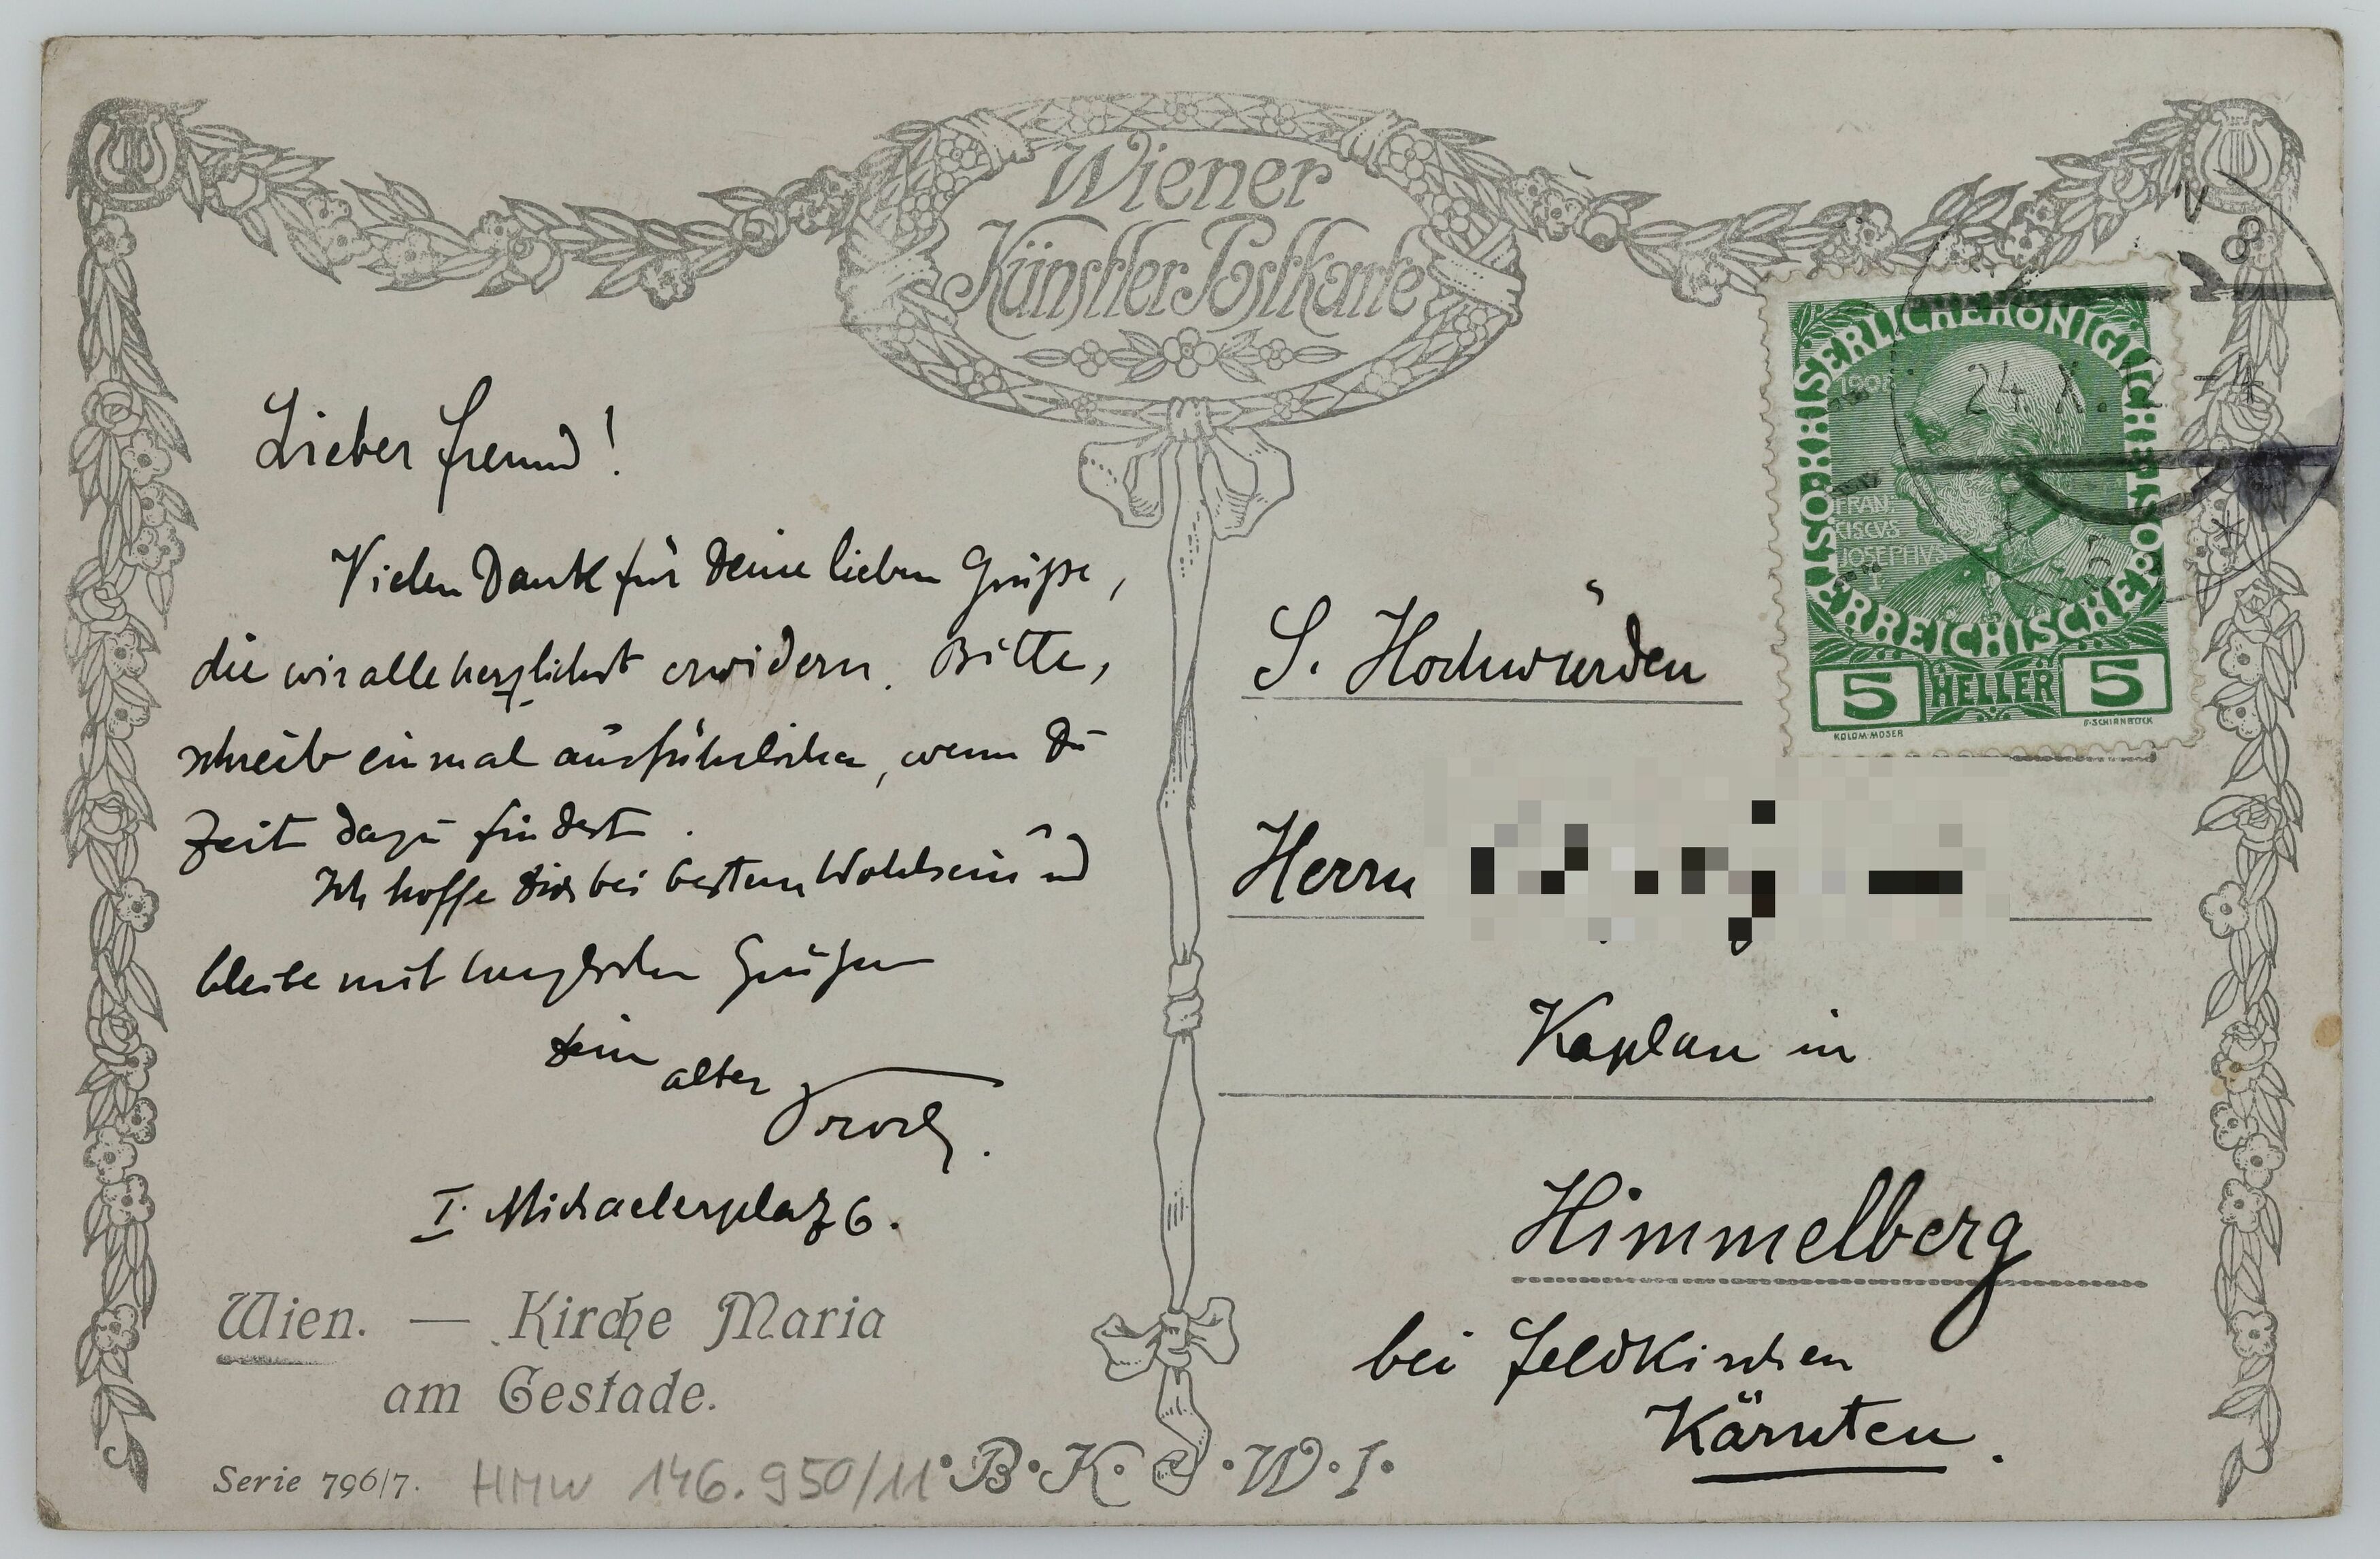 Wiener
Künstler Postkarte
Lieber Freund!
Vielen Dank für Deine lieben Grüße,
die wir alle herzlichst erwidern. Bitte,
schreib einmal ausführlicher, wenn Du
Zeit dazu findest.
Ich hoffe Dich bei bestem Wohlsein und
bleibe mit herzlichen Grüßen
Dein alter
I. Michaelerplatz 6.
Wien. — Kirche Maria
am Gestade.
Serie 796/7.
HMW 146.950/11
B.K.W.I.
KAISERLICHE KÖNIGLICHE ÖSTERREICHISCHE POST
1908
FRAN:
CISCVS
JOSEPHVS
I
5 HELLER 5
KOLOM·MOSER
F·SCHIRNBÖCK
24. X.
8
S. Hochwürden
Herrn
Kaplan in
Himmelberg
bei Feldkirchen
Kärnten.